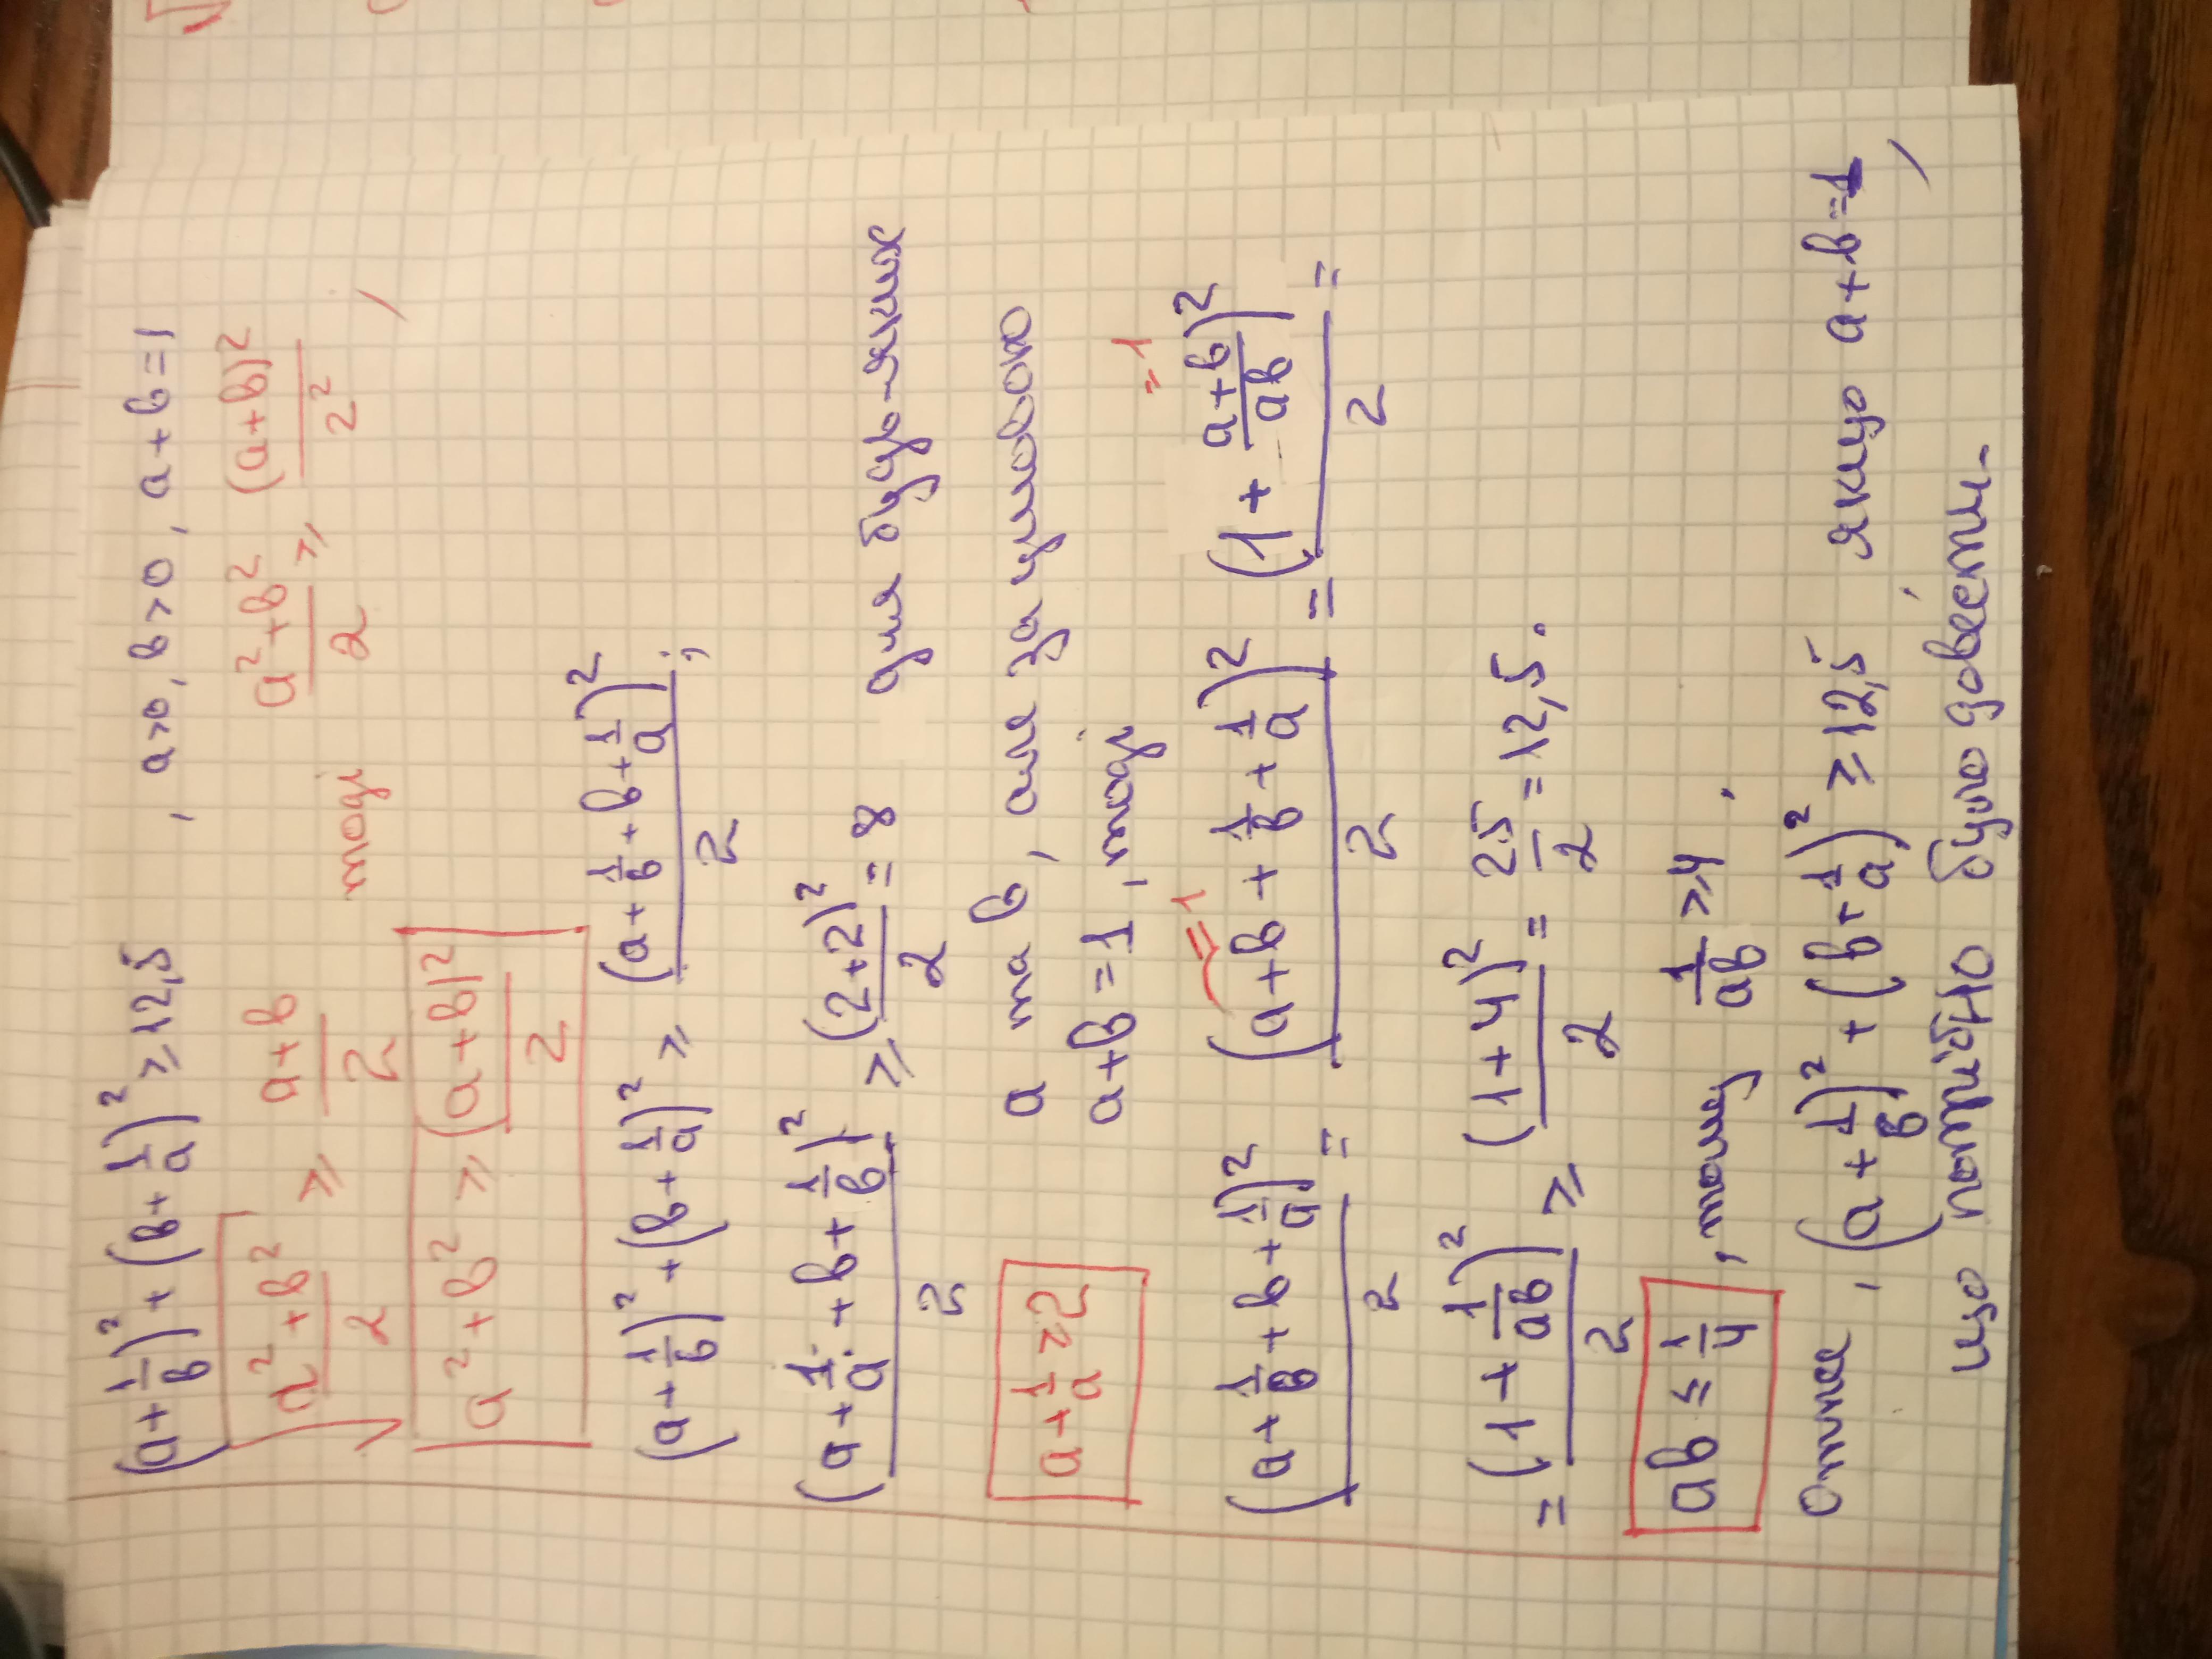 (a+1/b)²+(b+1/a)² ≥ 12,5 , a>0, b>0, a+b=1
√((a²+b²)/2) ≥ (a+b)/2 тоді (a²+b²)/2 ≥ (a+b)²/2² ,
a²+b² ≥ (a+b)²/2
(a+1/b)²+(b+1/a)² ≥ (a+1/b+b+1/a)²/2 ;
(a+1/a+b+1/b)²/2 ≥ (2+2)²/2 = 8 для будь-яких
a+1/a ≥ 2 a та b, але за умовою
a+b=1, тоді
=1 =1
(a+1/b+b+1/a)²/2 = (a+b+1/b+1/a)²/2 = (1+(a+b)/ab)²/2 =
= (1+1/ab)²/2 ≥ (1+4)²/2 = 25/2 = 12,5.
ab ≤ 1/4 , тому 1/ab ≥ 4 .
Отже , (a+1/b)²+(b+1/a)² ≥ 12,5 якщо a+b=1 ,
що потрібно було довести.